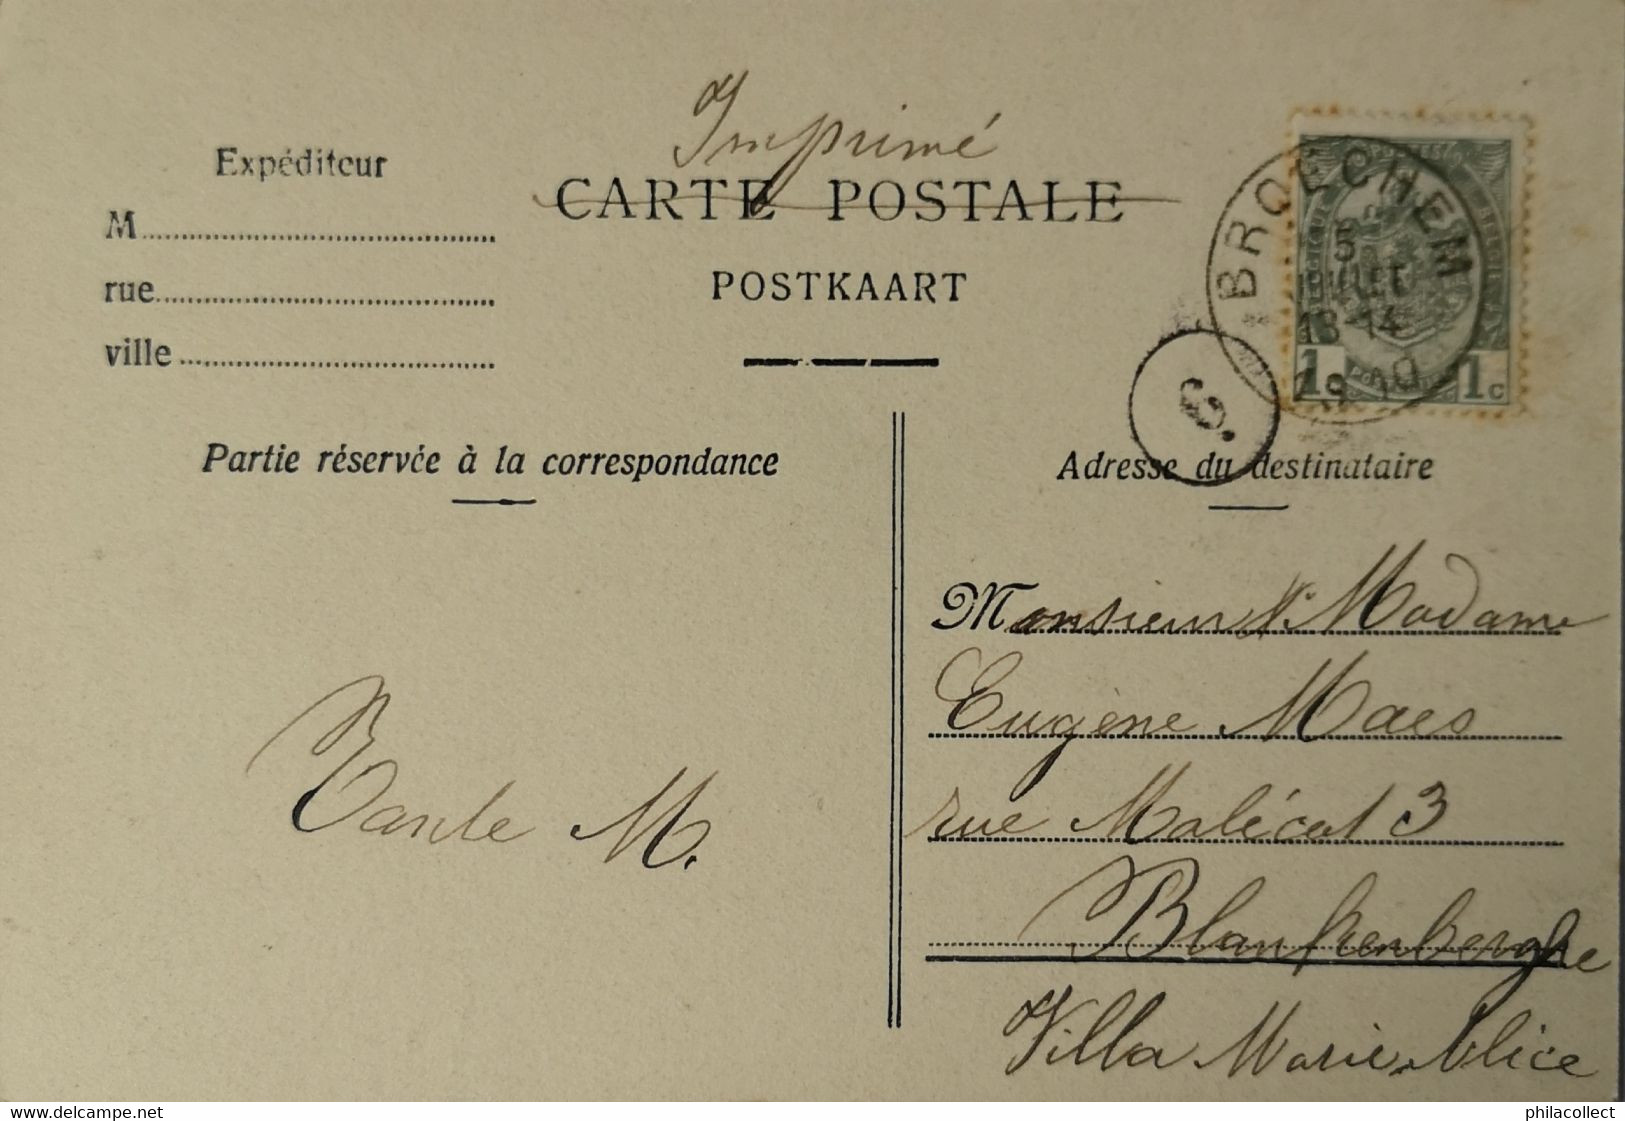 Imprimé
CARTE POSTALE
POSTKAART
Expéditeur
M
rue
ville
BROECHEM
5
JUILLET
13-14
1910
1 1c
6.
Partie réservée à la correspondance
Adresse du destinataire
Monsieur & Madame
Eugène Maes
rue Malécot 3
Blankenberghe
Villa Marie Alice
Tante M.
www.delcampe.net
philacollect